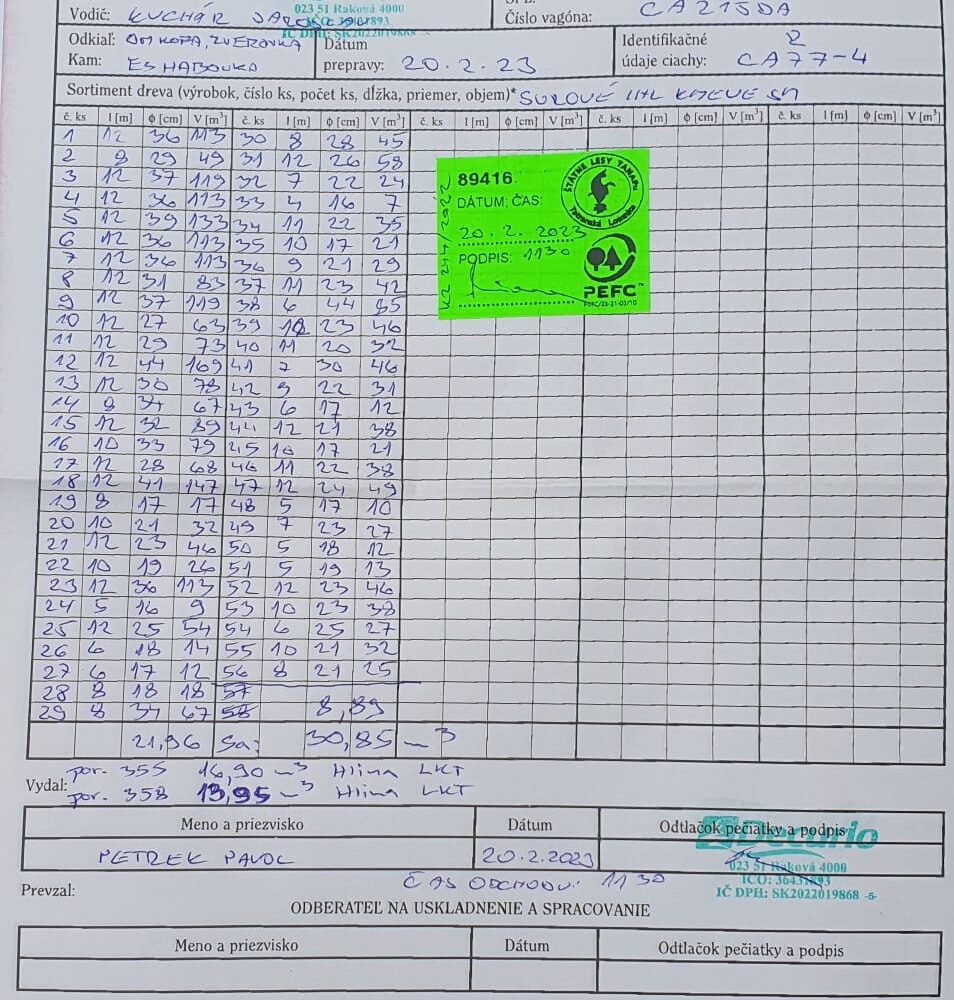 Vodič: KUCHÁR
023 51 Raková 4000
IČ DPH: SK2022019868 -5-
Číslo vagóna: CA215DA
Odkiaľ: OM KOPA, ZVEROVKA
Kam: ES HABOVKA
Dátum
prepravy: 20.2.23
Identifikačné
údaje ciachy: 2 CA77-4
Sortiment dreva (výrobok, číslo ks, počet ks, dĺžka, priemer, objem)* SUROVÉ KMEVE SM
č. ks l [m] φ [cm] V [m³] č. ks l [m] φ [cm] V [m³] č. ks l [m] φ [cm] V [m³] č. ks l [m] φ [cm] V [m³] č. ks l [m] φ [cm] V [m³]
1 12 36 113 30 8 28 45
2 9 29 49 31 12 26 58
3 12 37 119 32 7 22 24
4 12 36 113 33 4 16 7
5 12 39 133 34 11 22 35
6 12 36 113 35 10 17 21
7 12 36 113 36 9 21 29
8 12 31 83 37 11 23 42
9 12 37 119 38 6 44 85
10 12 27 63 39 12 23 46
11 12 29 73 40 11 20 32
12 12 44 169 41 7 30 46
13 12 30 78 42 9 22 31
14 9 34 67 43 6 17 12
15 12 32 89 44 12 21 38
16 10 33 79 45 10 17 21
17 12 28 68 46 11 22 38
18 12 41 147 47 12 24 49
19 8 17 17 48 5 17 10
20 10 21 32 49 7 23 27
21 12 23 46 50 5 18 12
22 10 19 26 51 5 19 13
23 12 36 113 52 12 23 46
24 5 16 9 53 10 23 38
25 12 25 54 54 6 25 27
26 6 18 14 55 10 21 32
27 6 17 12 56 8 21 25
28 8 18 18 57
29 8 34 67 58 8,89
21,96 Sa: 30,85 m³
89416
DÁTUM, ČAS:
20. 2. 2023
PODPIS: 1130
ŠTÁTNE LESY TANAPu
Tatranská Lomnica
PEFC™
Vydal: por. 355 16,90 m³ Hlina LKT
por. 358 13,95 m³ Hlina LKT
Meno a priezvisko Dátum Odtlačok pečiatky a podpis
PETREK PAVOL 20.2.2023
Decario
023 51 Raková 4000
IČO: 36431893
IČ DPH: SK2022019868 -5-
ČAS ODCHODU: 1130
Prevzal:
ODBERATEĽ NA USKLADNENIE A SPRACOVANIE
Meno a priezvisko Dátum Odtlačok pečiatky a podpis